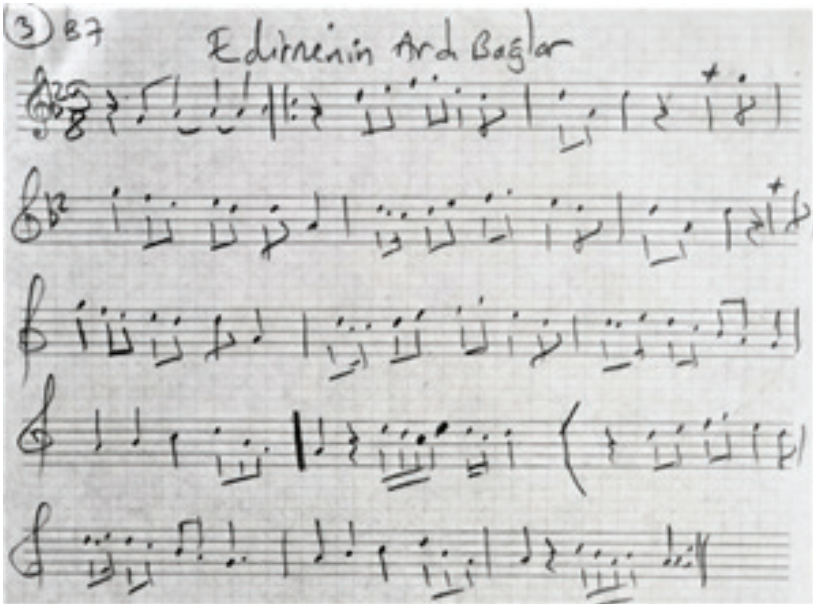 3 B7
Edirnenin Ardı Bağlar